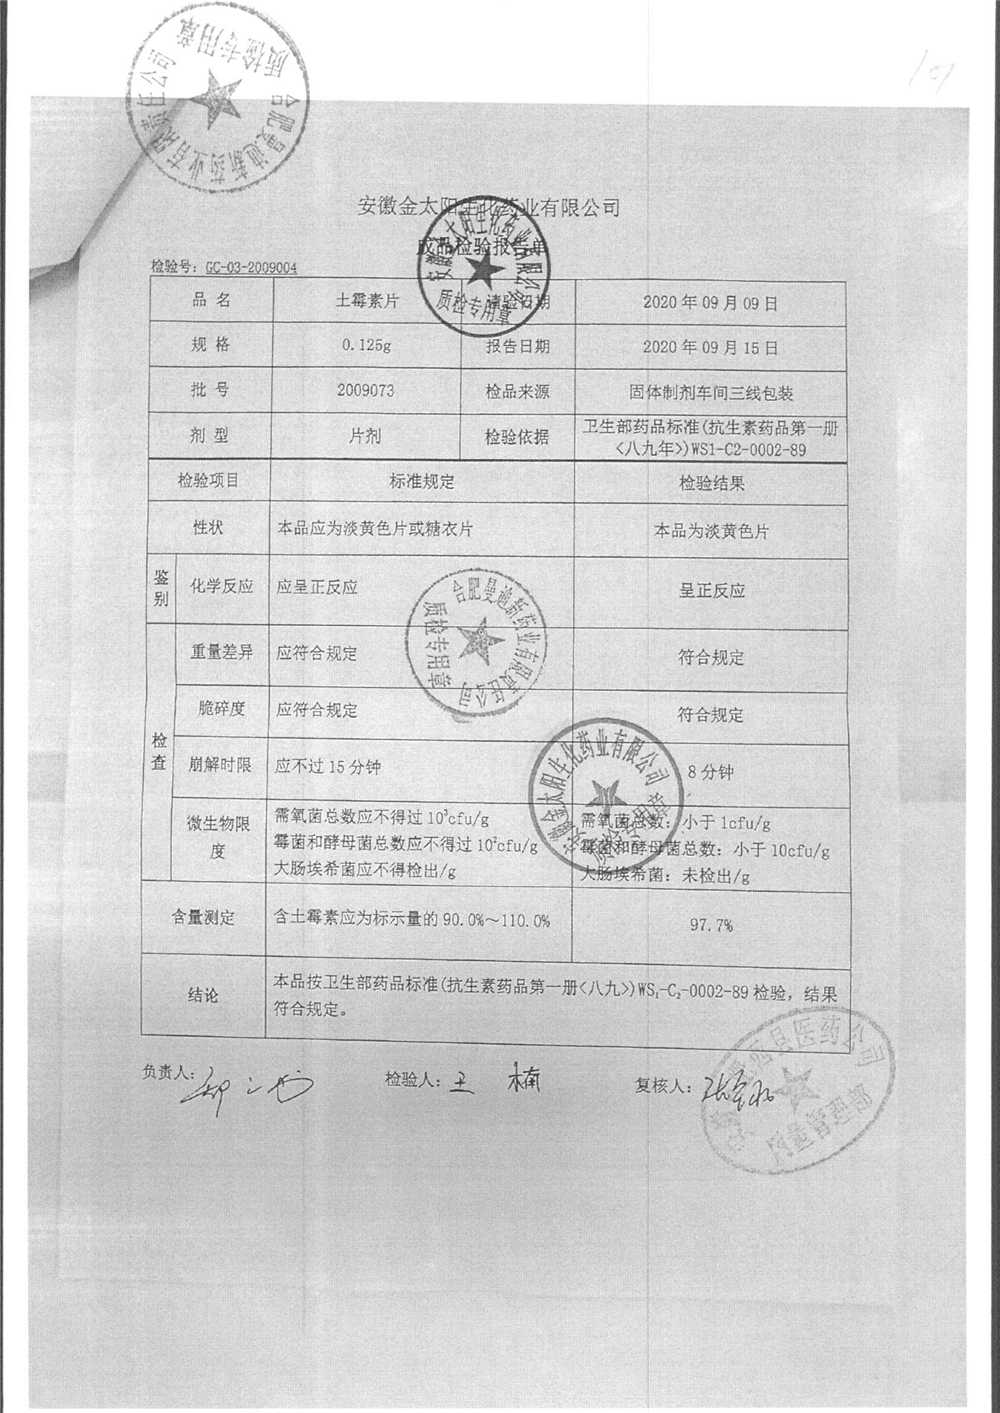 合肥曼迪新药业有限责任公司
质检专用章
安徽金太阳生化药业有限公司
成品检验报告单
安徽金太阳生化药业有限公司
质检专用章
检验号：GC-03-2009004
品 名 土霉素片 请验日期 2020 年 09 月 09 日
规 格 0.125g 报告日期 2020 年 09 月 15 日
批 号 2009073 检品来源 固体制剂车间三线包装
剂 型 片剂 检验依据 卫生部药品标准(抗生素药品第一册
<八九年>)WS1-C2-0002-89
检验项目 标准规定 检验结果
性状 本品应为淡黄色片或糖衣片 本品为淡黄色片
鉴别 化学反应 应呈正反应 呈正反应
合肥曼迪新药业有限责任公司
质检专用章
检查 重量差异 应符合规定 符合规定
脆碎度 应符合规定 符合规定
安徽金太阳生化药业有限公司
质检专用章
崩解时限 应不过 15 分钟 8 分钟
微生物限度 需氧菌总数应不得过 10³cfu/g 需氧菌总数：小于 1cfu/g
霉菌和酵母菌总数应不得过 10²cfu/g 霉菌和酵母菌总数：小于 10cfu/g
大肠埃希菌应不得检出/g 大肠埃希菌：未检出/g
含量测定 含土霉素应为标示量的 90.0%～110.0% 97.7%
结论 本品按卫生部药品标准(抗生素药品第一册<八九>)WS₁-C₂-0002-89 检验，结果
符合规定。
县医药公司
质量管理部
负责人： 检验人：王 楠 复核人：